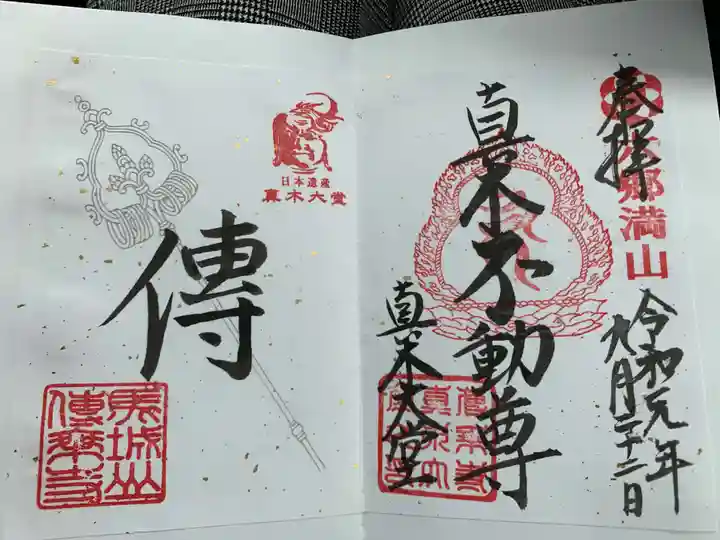 奉拝
郷満山
令和元年
九月二十二日
真木不動尊
真木大堂
日本遺産
真木大堂
傳
馬城山
傳乗寺